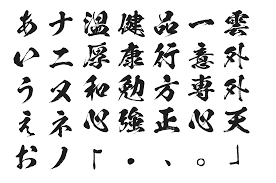 雲外外天」
一意専心。
品行方正、
健康勉強・
温厚和心「
ナニヌネノ
あいうえお